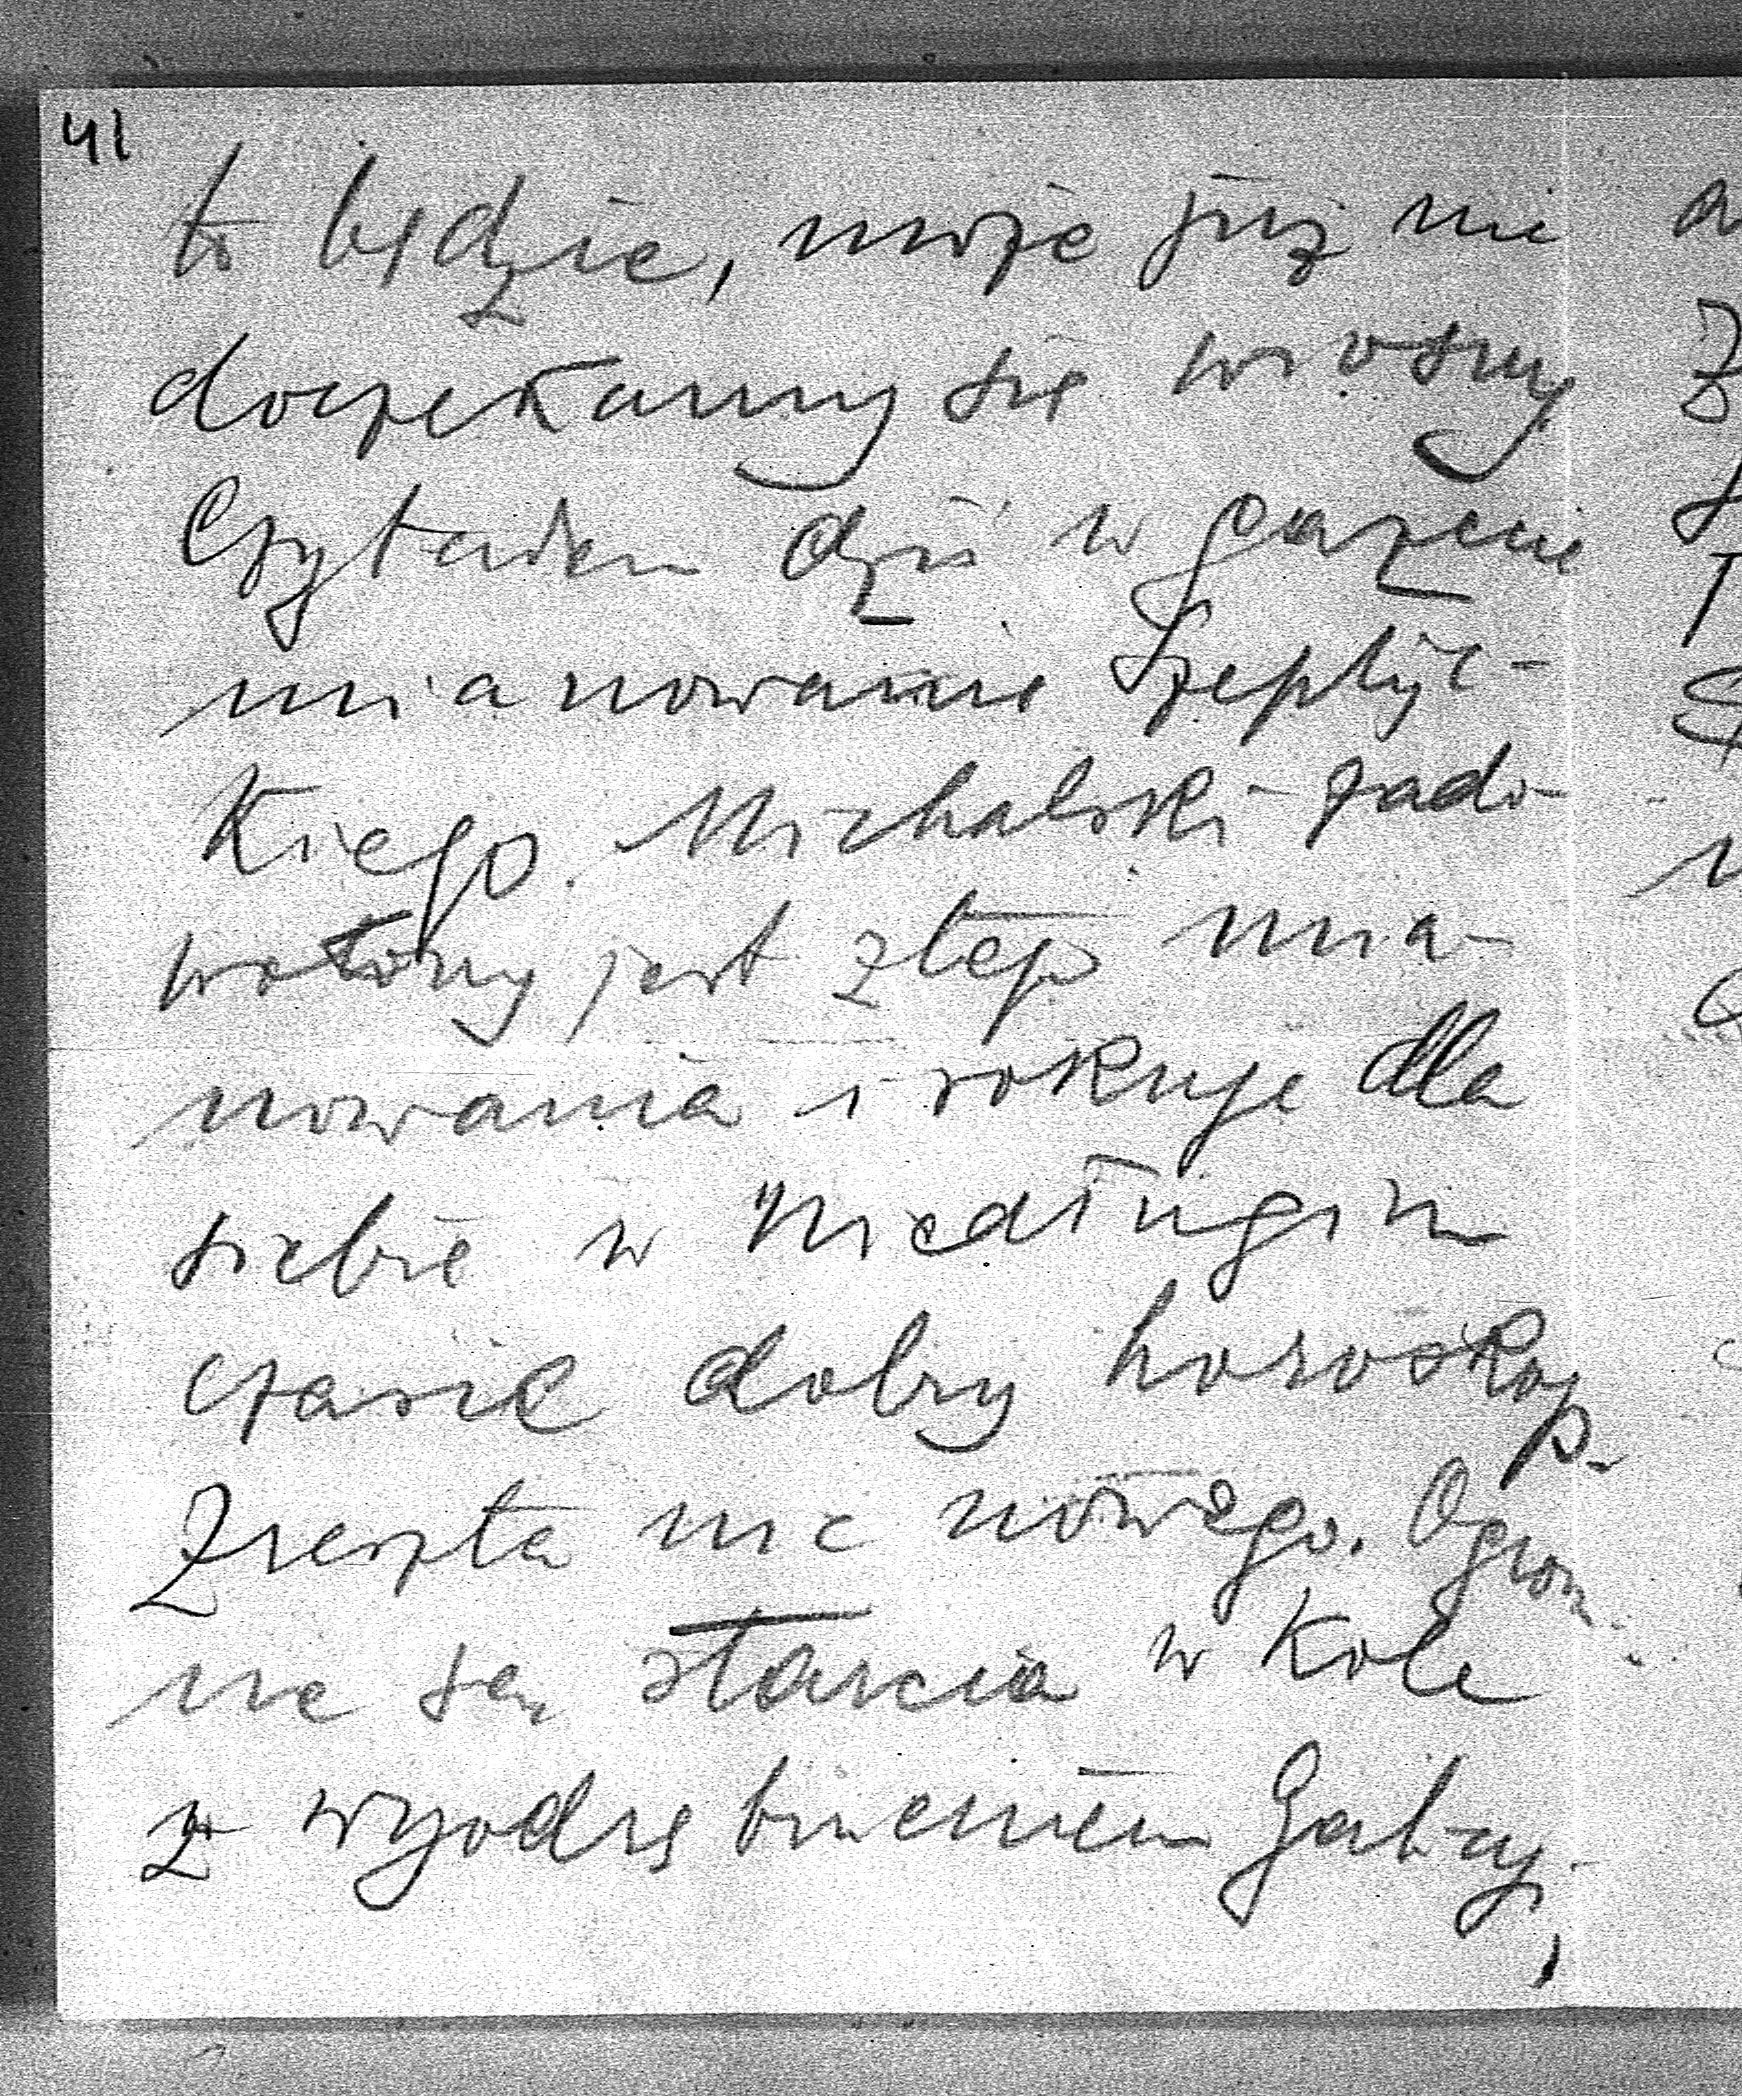 41
to będzie, może już nie
doczekamy się wiosny
Czytałem dziś w gazecie
mianowanie Szeptyc-
kiego. Michalski zado-
wolony jest z tego mia-
nowania i rokuje dla
siebie w niedługim
czasie dobry horoskop.
Zresztą nic nowego. Ogrom
ne są starcia w Kole
z wyodrębnieniem Galicyi,